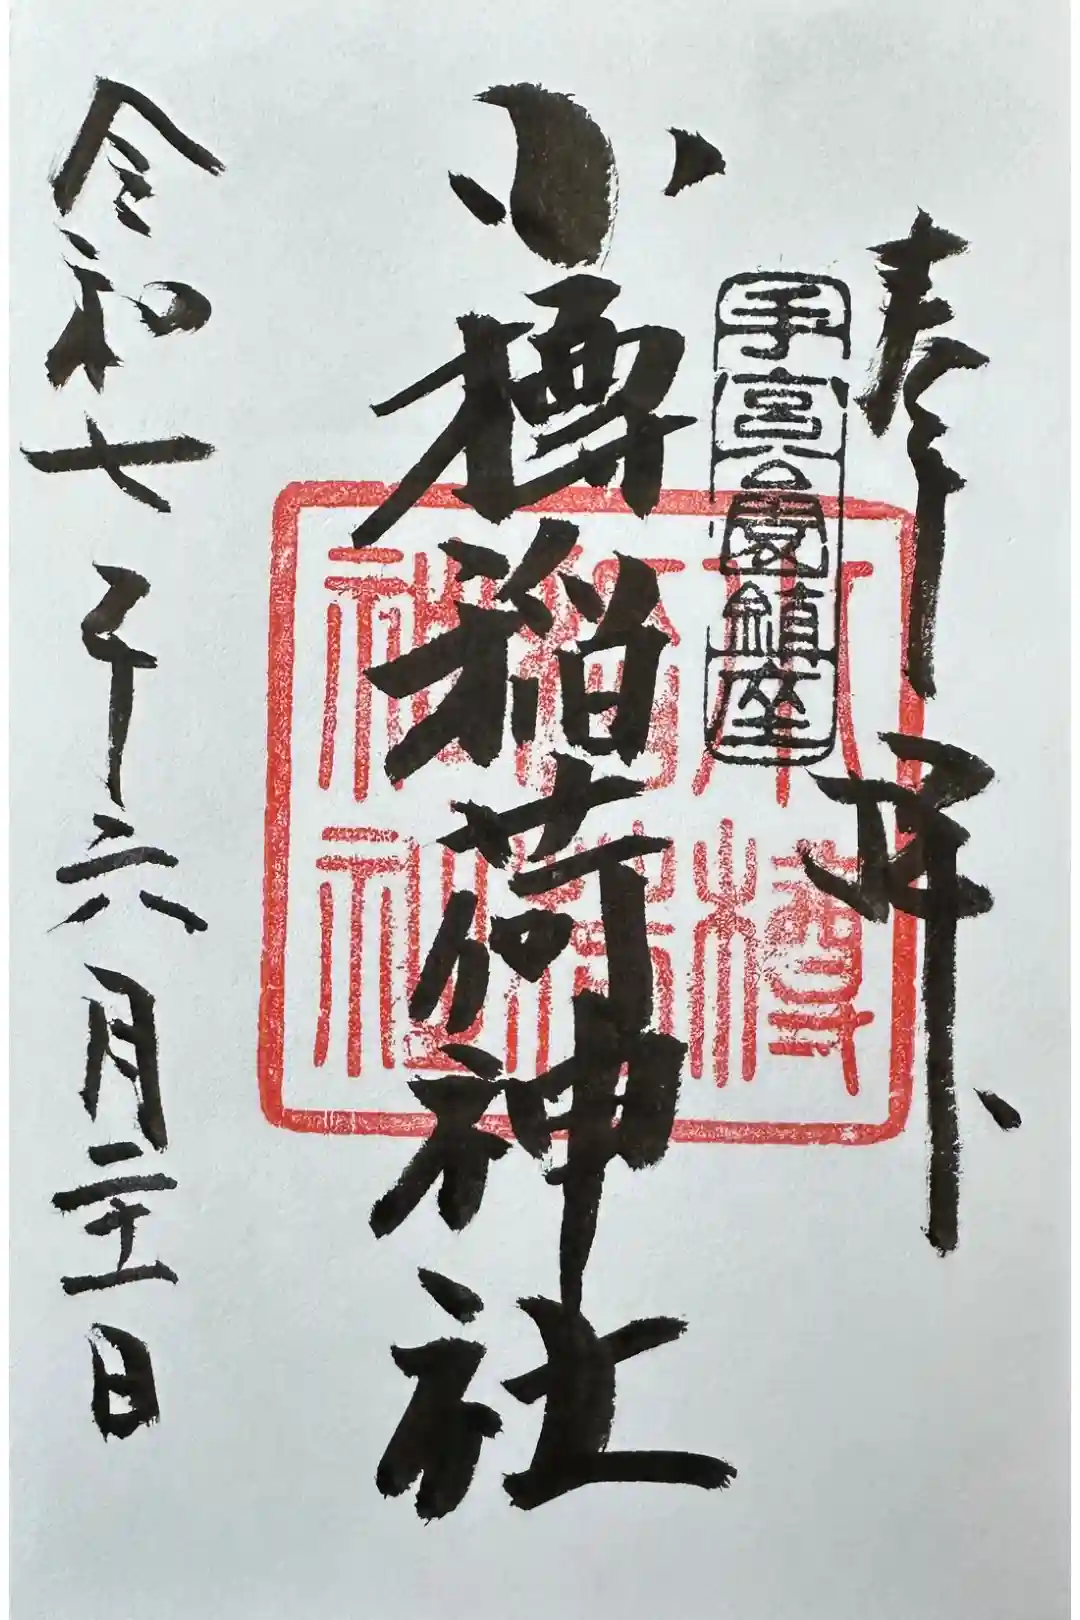 奉拝
手宮公園鎮座
小樽稲荷神社
小樽
稲荷
神社
令和七年六月二十一日